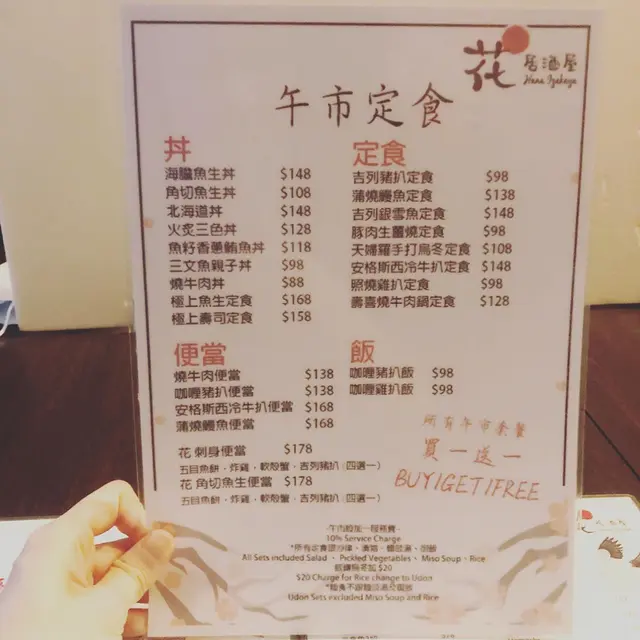 花 居酒屋
Hana Izakaya
午市定食
丼
海膽魚生丼 $148
角切魚生丼 $108
北海道丼 $148
火炙三色丼 $128
魚籽香蔥鮪魚丼 $118
三文魚親子丼 $98
燒牛肉丼 $88
極上魚生定食 $168
極上壽司定食 $158
定食
吉列豬扒定食 $98
蒲燒鰻魚定食 $138
吉列銀雪魚定食 $148
豚肉生薑燒定食 $98
天婦羅手打烏冬定食 $108
安格斯西冷牛扒定食 $148
照燒雞扒定食 $98
壽喜燒牛肉鍋定食 $128
便當
燒牛肉便當 $138
咖喱豬扒便當 $138
安格斯西冷牛扒便當 $168
蒲燒鰻魚便當 $168
花 刺身便當 $178
五目魚餅，炸雞，軟殼蟹，吉列豬扒（四選一）
花 角切魚生便當 $178
五目魚餅，炸雞，軟殼蟹，吉列豬扒（四選一）
飯
咖喱豬扒飯 $98
咖喱雞扒飯 $98
所有午市套餐
買一送一
BUY1GET1FREE
10% Service Charge
All Sets included Salad、Pickled Vegetables、Miso Soup、Rice
$20 Charge for Rice change to Udon
Udon Sets excluded Miso Soup and Rice